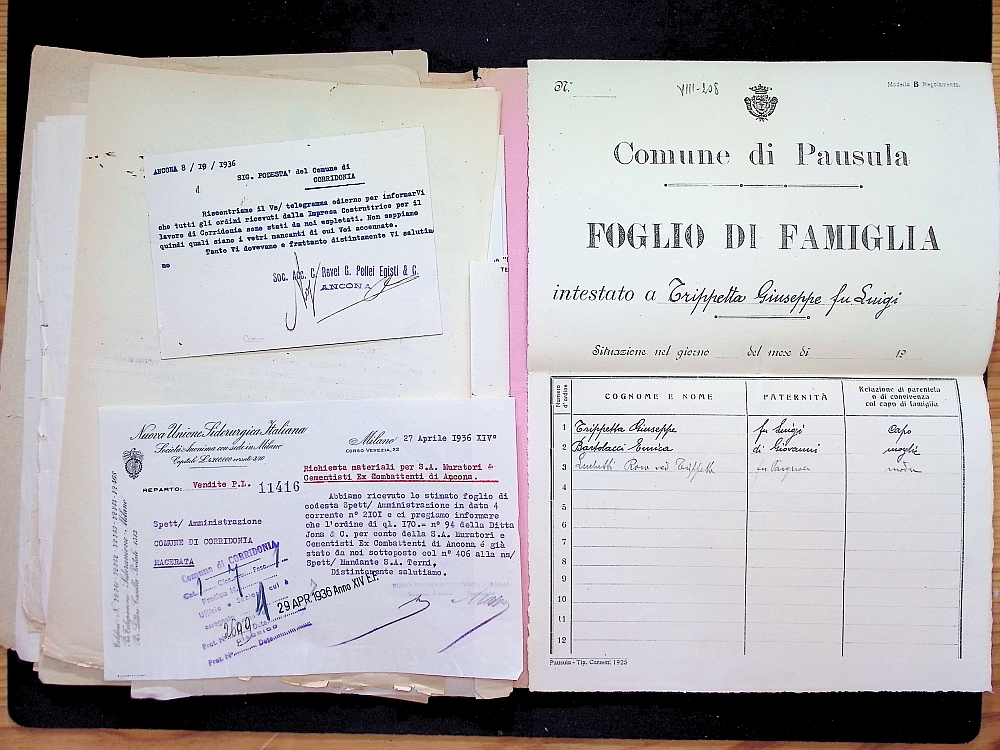 ANCONA 8 / 10 / 1936
SIG. PODESTA' del Comune di
CORRIDONIA
Riscontriamo il Vs/ telegramma odierno per informarVi
che tutti gli ordini ricevuti dalla Impresa Costruttrice per il
lavoro di Corridonia sono stati da noi espletati. Non sappiamo
quindi quali siano i vetri mancanti di cui Voi accennate.
Tanto Vi dovevamo e frattanto distintamente Vi salutia
mo
Soc. Acc. G. Ravel G. Pellei Egisti & C.
ANCONA
Nuova Unione Siderurgica Italiana
Società Anonima con sede in Milano
Milano 27 Aprile 1936 XIVº
CORSO VENEZIA, 22
REPARTO: Vendite P.L. 11416
Richiesta materiali per S.A. Muratori &
Cementisti Ex Combattenti di Ancona.
Abbiamo ricevuto lo stimato foglio di
codesta Spett/ Amministrazione in data 4
corrente n° 2101 e ci pregiamo informare
che l'ordine di ql. 170.= n° 94 della Ditta
Jona & C. per conto della S.A. Muratori e
Cementisti Ex Combattenti di Ancona é già
stato da noi sottoposto col n° 406 alla ns/
Spett/ Mandante S.A. Terni.
Distintamente salutiamo.
Spett/ Amministrazione
COMUNE DI CORRIDONIA
MACERATA
Comune di CORRIDONIA
29 APR. 1936 Anno XIV E.F.
N.°
VIII-208
Modello B Regolamento.
Comune di Pausula
FOGLIO DI FAMIGLIA
intestato a Trippetta Giuseppe fu Luigi
Situazione nel giorno del mese di 19
Numero d'ordine
COGNOME E NOME
PATERNITÀ
Relazione di parentela
o di convivenza
col capo di famiglia
1 Trippetta Giuseppe fu Luigi Capo
2 Bartolacci Enrica di Giovanni moglie
3
4
5
6
7
8
9
10
11
12
Pausula - Tip. Cassetti 1925